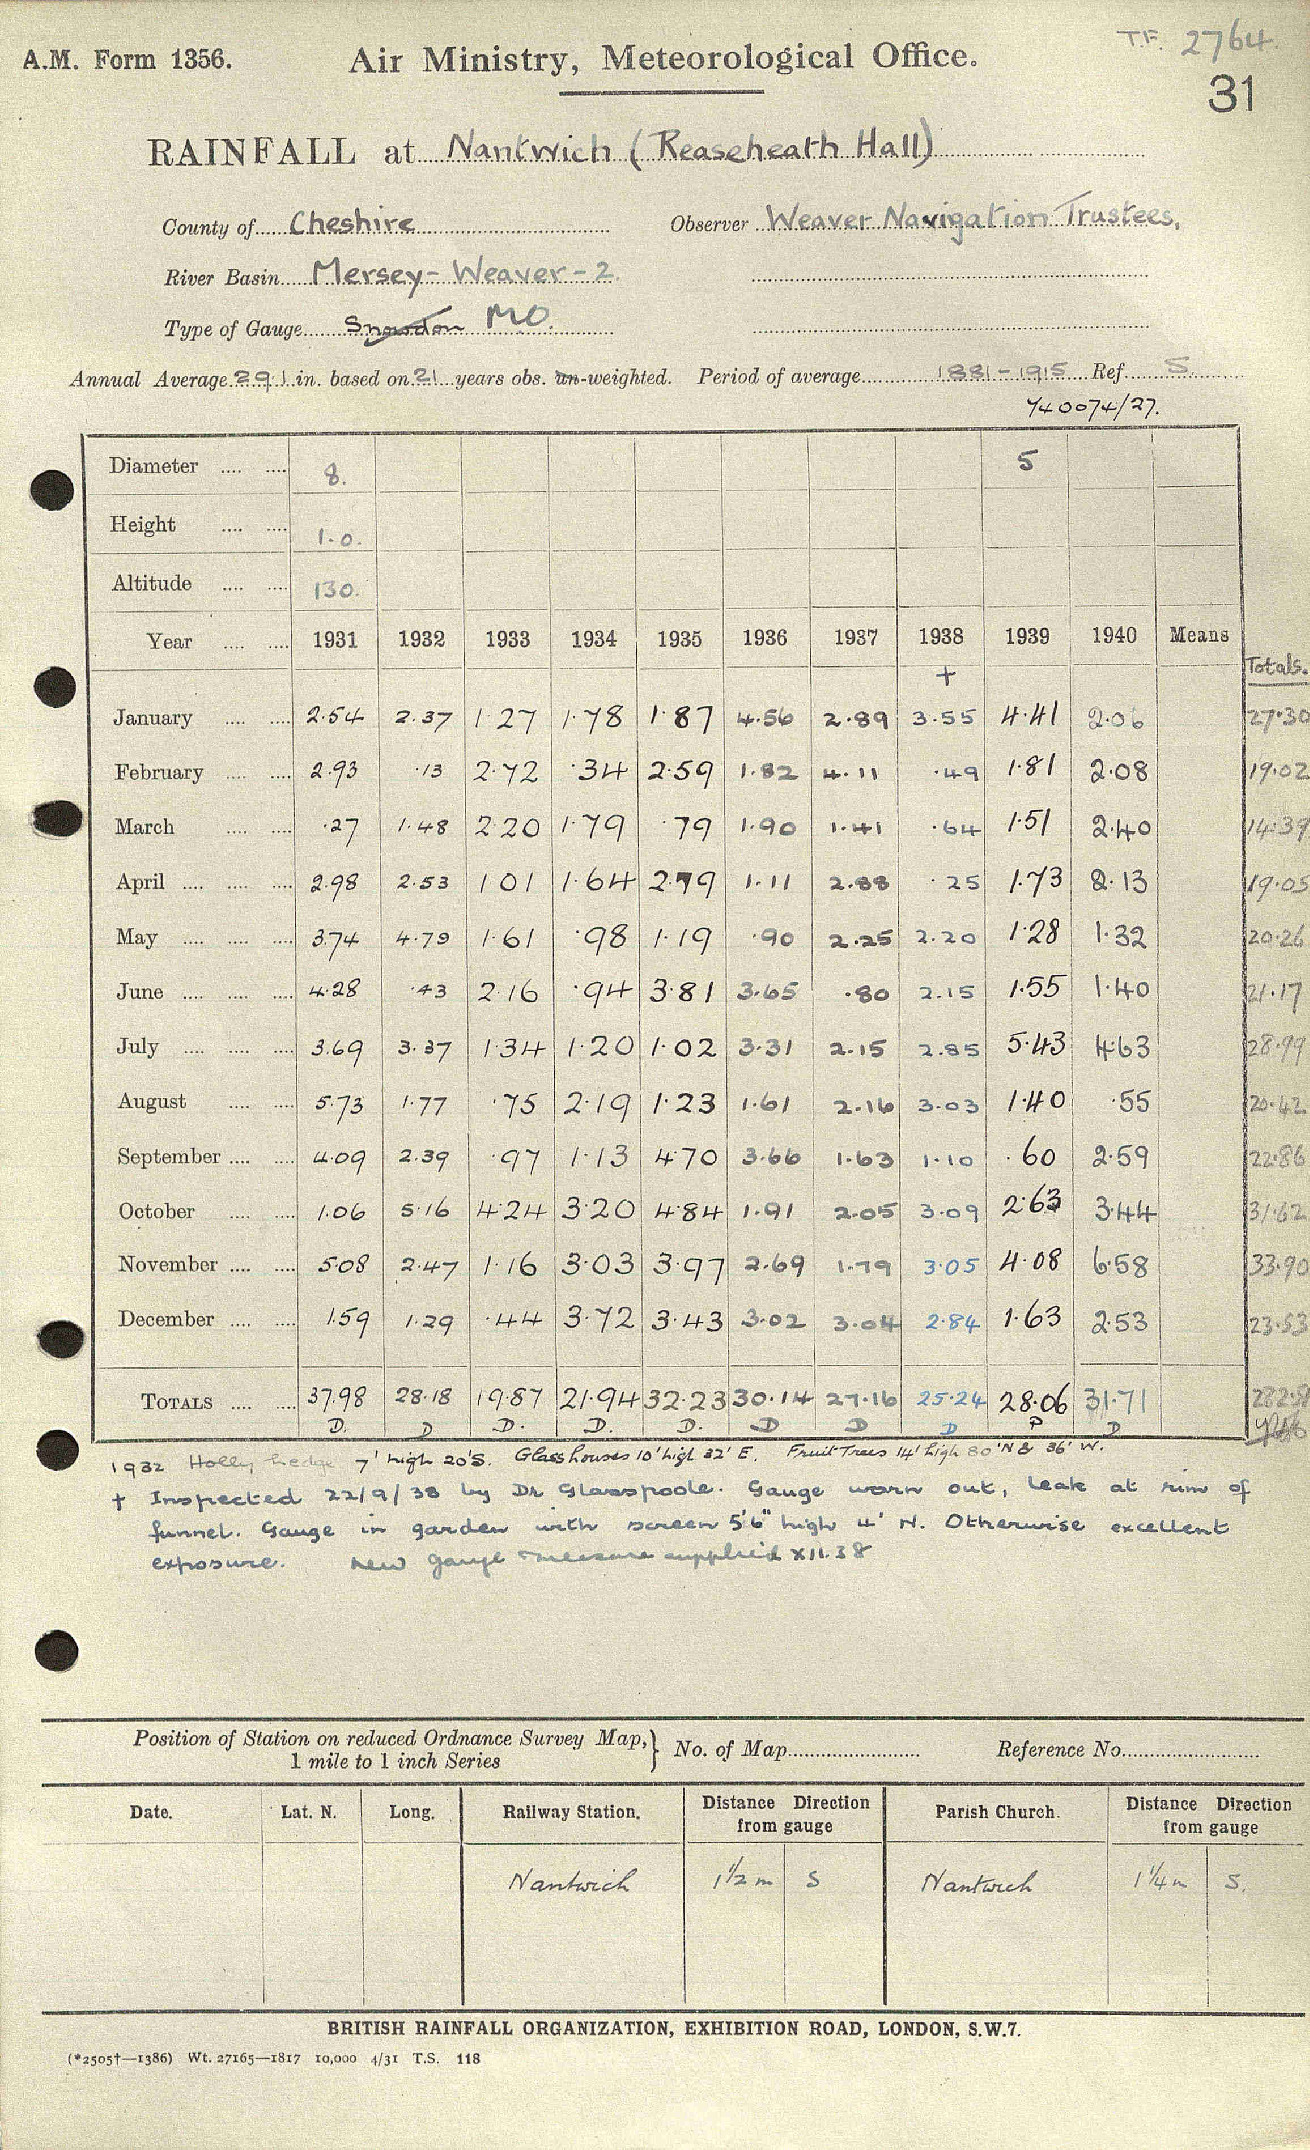 T.F. 2764.
A.M. Form 1356. Air Ministry, Meteorological Office.
31
RAINFALL at Nantwich (Reaseheath Hall)
County of Cheshire Observer Weaver Navigation Trustees,
River Basin Mersey - Weaver - 2.
Type of Gauge Snowdon M.O.
Annual Average 29.1 in. based on 21 years obs. un-weighted. Period of average 1881-1915 Ref S.
740074/27.
Diameter 8. 5
Height 1.0.
Altitude 130.
Year 1931 1932 1933 1934 1935 1936 1937 1938 1939 1940 Means
† Totals.
January 2.54 2.37 1.27 1.78 1.87 4.56 2.89 3.55 4.41 2.06 27.30
February 2.93 .13 2.72 .34 2.59 1.82 4.11 .49 1.81 2.08 19.02
March .27 1.48 2.20 1.79 .79 1.90 1.41 .64 1.51 2.40 14.39
April 2.98 2.53 1.01 1.64 2.79 1.11 2.88 .25 1.73 2.13 19.05
May 3.74 4.79 1.61 .98 1.19 .90 2.25 2.20 1.28 1.32 20.26
June 4.28 .43 2.16 .94 3.81 3.65 .80 2.15 1.55 1.40 21.17
July 3.69 3.37 1.34 1.20 1.02 3.31 2.15 2.85 5.43 4.63 28.99
August 5.73 1.77 .75 2.19 1.23 1.61 2.16 3.03 1.40 .55 20.42
September 4.09 2.39 .97 1.13 4.70 3.66 1.63 1.10 .60 2.59 22.86
October 1.06 5.16 4.24 3.20 4.84 1.91 2.05 3.09 2.63 3.44 31.62
November 5.08 2.47 1.16 3.03 3.97 2.69 1.79 3.05 4.08 6.58 33.90
December 1.59 1.29 .44 3.72 3.43 3.02 3.04 2.84 1.63 2.53 23.53
TOTALS 37.98 28.18 19.87 21.94 32.23 30.14 27.16 25.24 28.06 31.71 282.51
D. D D. D. D. D D D P D
1932 Holly hedge 7' high 20'S. Glasshouses 10' high 32' E. Fruit Trees 14' high 80'N & 36' W.
† Inspected 22/9/38 by Dr Glasspoole. Gauge worn out, leak at rim of
funnel. Gauge in garden with screen 5'6" high 4' N. Otherwise excellent
exposure. New gauge & measure supplied XII.38
Position of Station on reduced Ordnance Survey Map,} No. of Map Reference No.
1 mile to 1 inch Series
Date. Lat. N. Long. Railway Station. Distance Direction from gauge Parish Church. Distance Direction from gauge
Nantwich 1½ m S Nantwich 1¼ m S.
BRITISH RAINFALL ORGANIZATION, EXHIBITION ROAD, LONDON, S.W.7.
(*2505†—1386) Wt. 27165—1817 10,000 4/31 T.S. 118